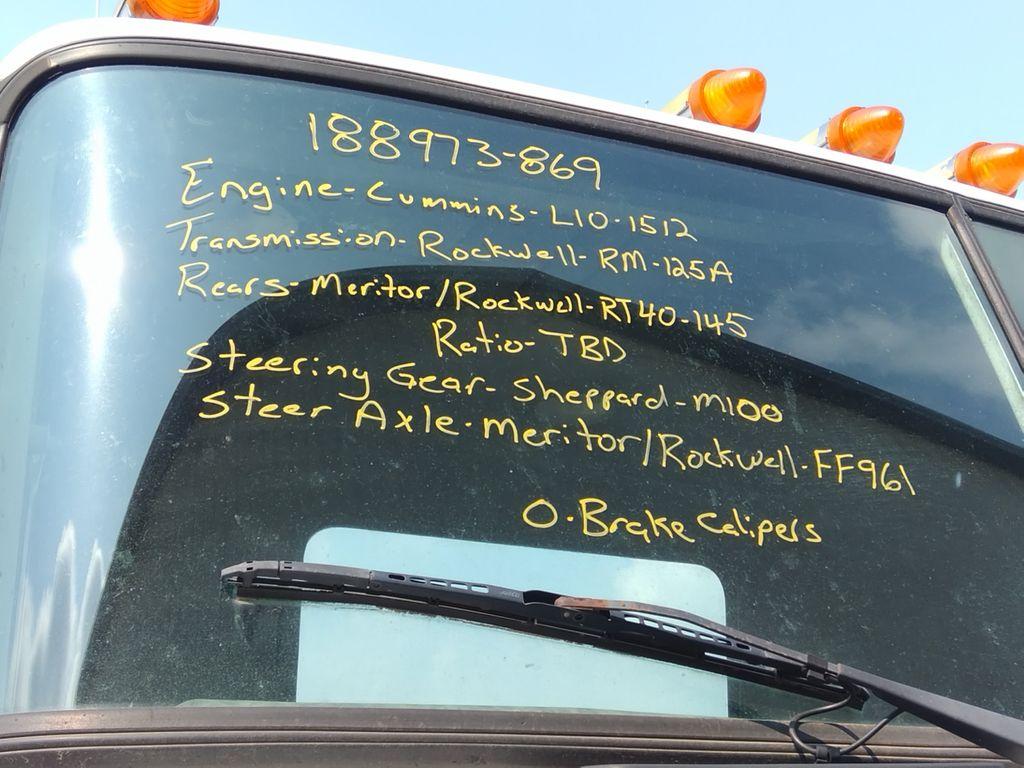 188973-869
Engine-Cummins-L10-1512
Transmission-Rockwell-RM-125A
Rears-Meritor/Rockwell-RT40-145
Ratio-TBD
Steering Gear-Sheppard-M100
Steer Axle-Meritor/Rockwell-FF961
0-Brake Calipers